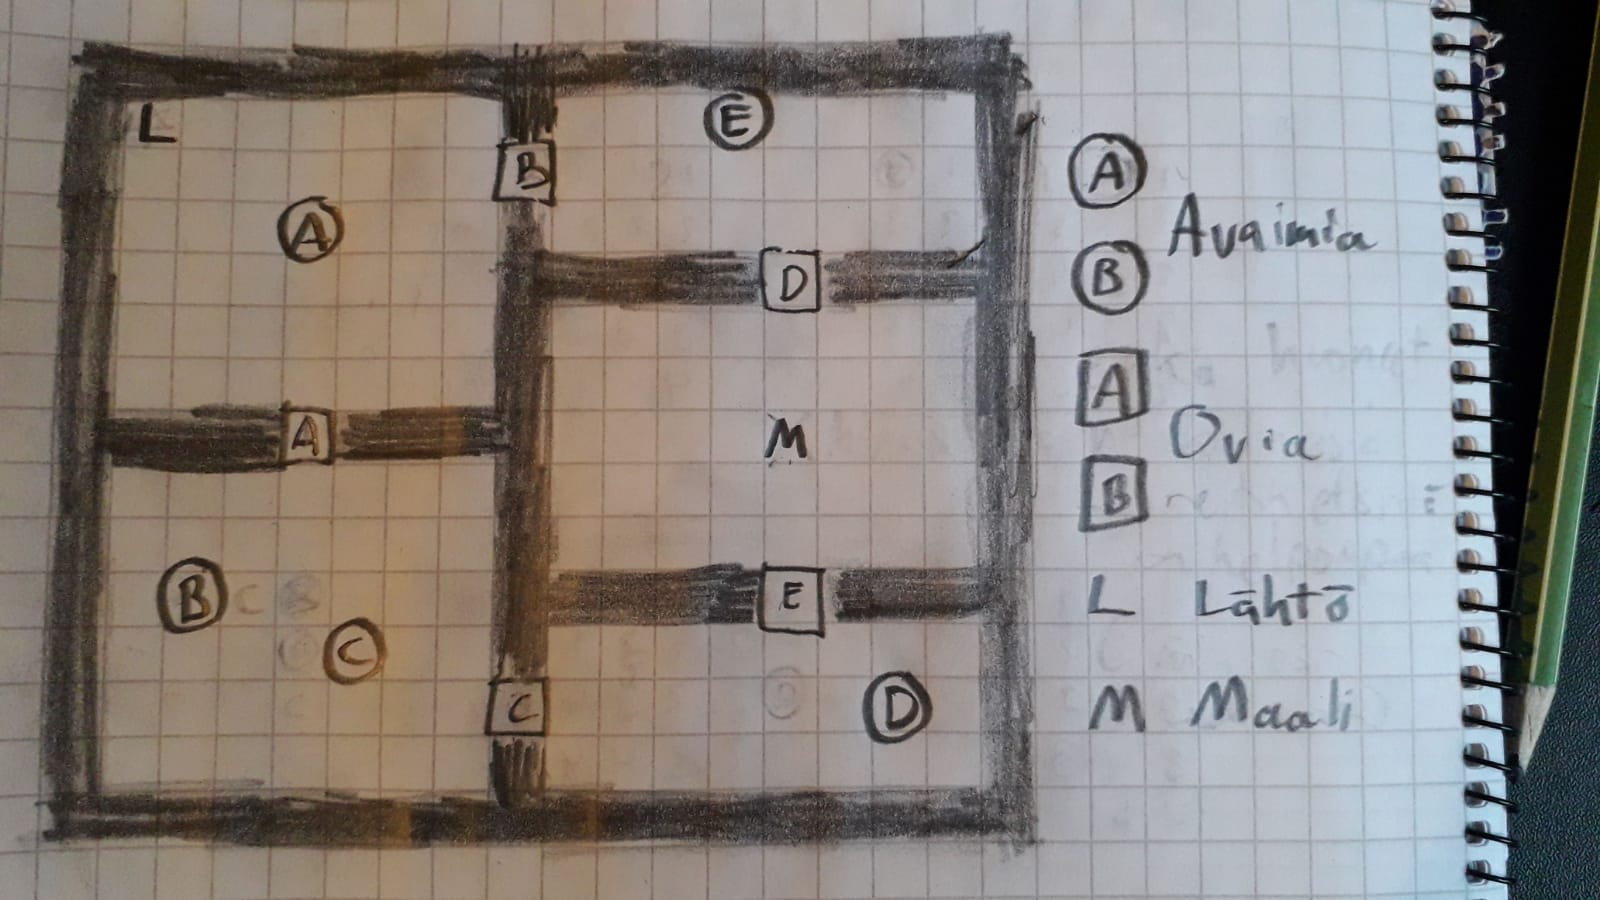 L
E
B
A
D
A
M
B
E
C
C
D
A
Avaimia
B
A
Ovia
B
L Lähtö
M Maali